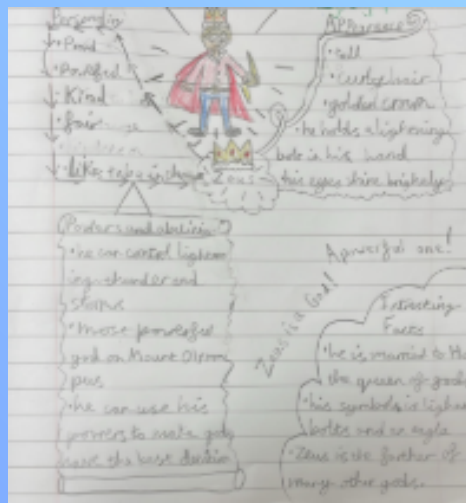 Personality
• Proud
• Kind
• fair
Zeus
Appearance
• tall
• curly hair
• golden crown
• he holds a lightening
bolt in his hand
his eyes shine brightely
Powers and abilities
• he can control lighten
ing thunder and
storms
• most powerful
god on Mount Olym
pus
• he can use his
powers to make gods
have the best
Zeus is a God!
A powerful one!
Intresting
Facts
• he is married to
the queen of gods
• his symbols is lighen
bolts and an eagle
• Zeus is the farther of
many other gods.